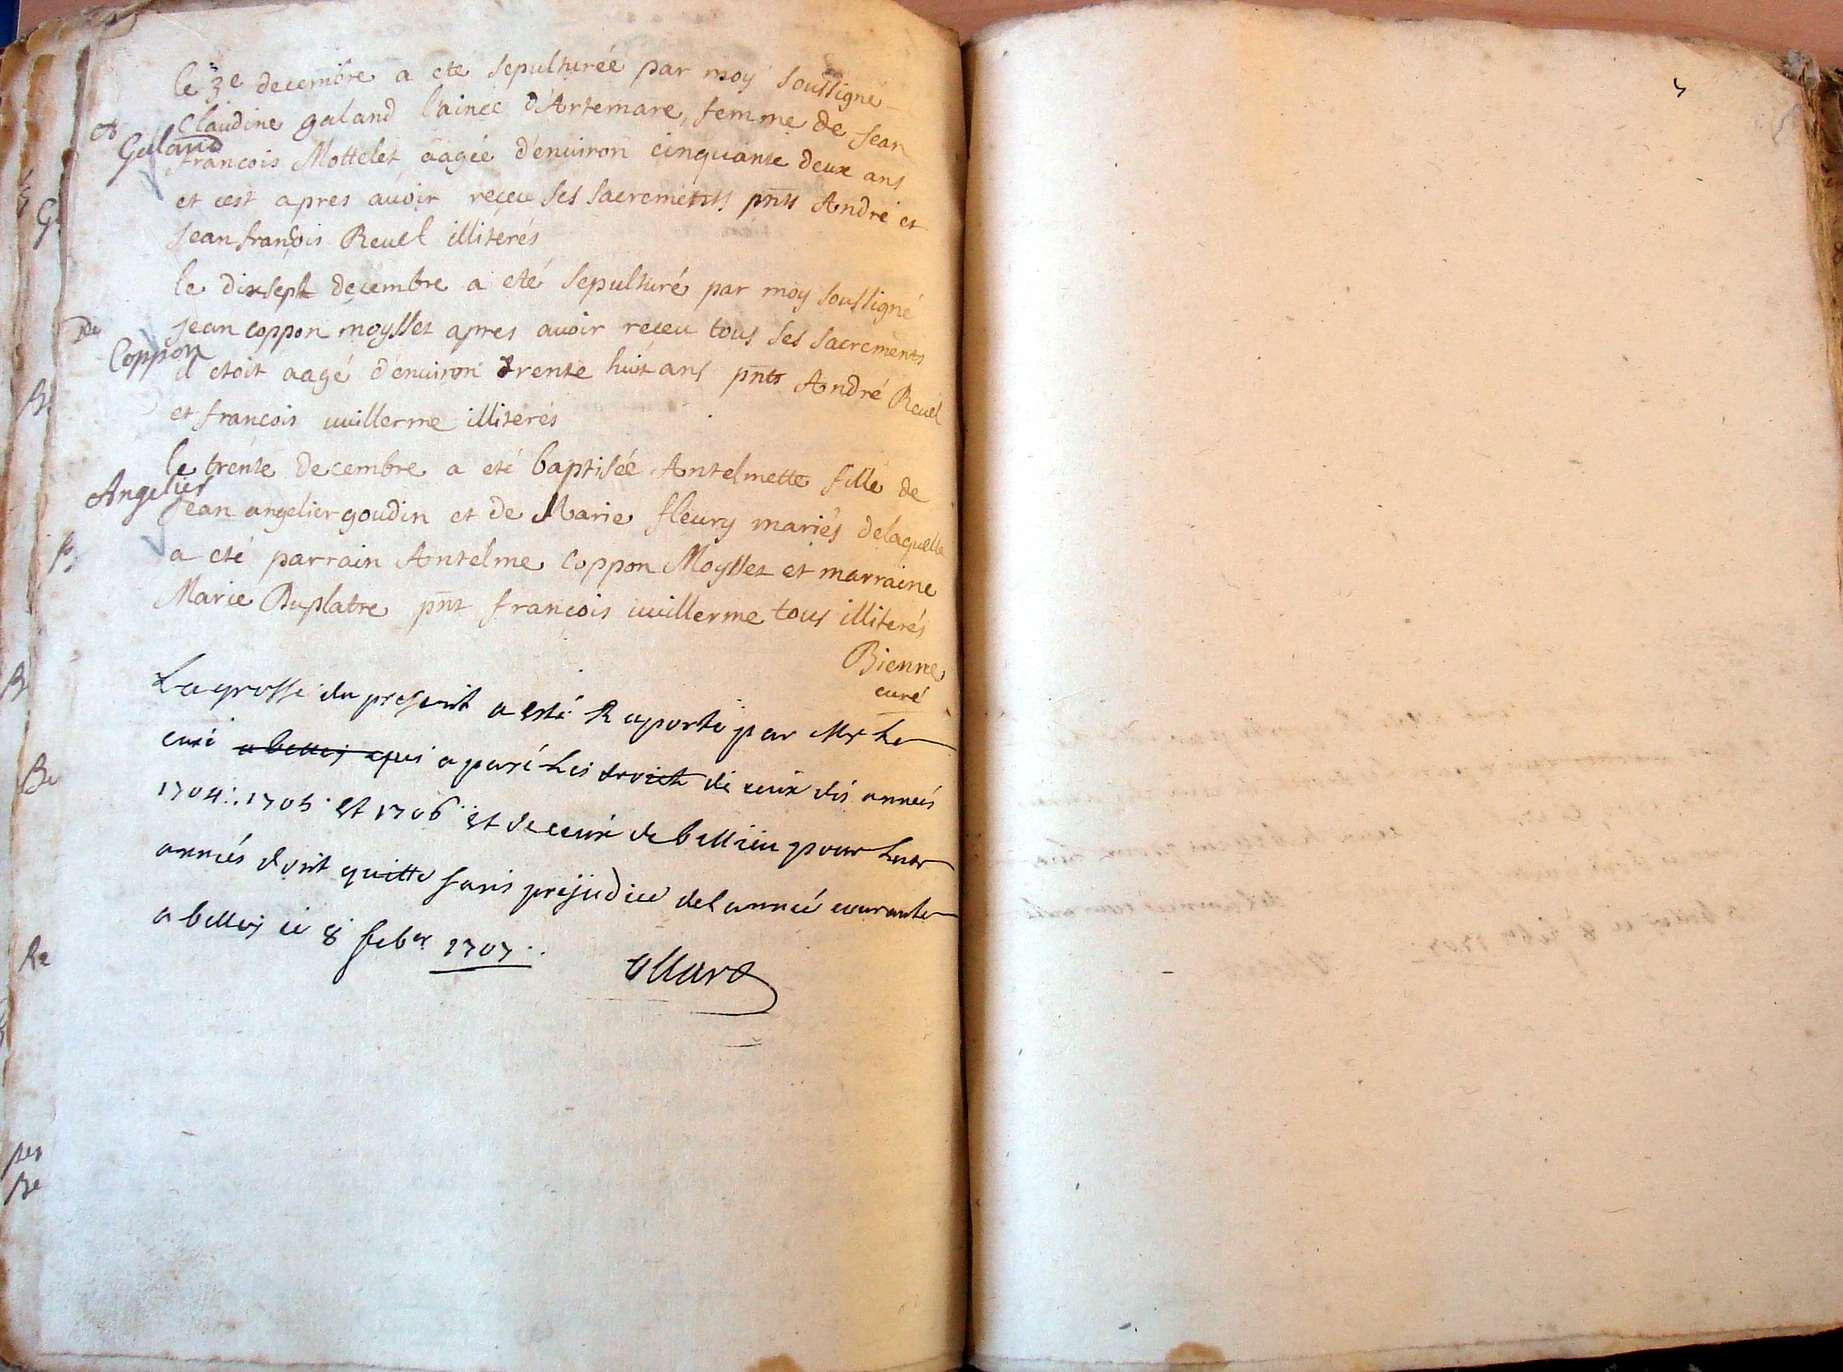 le 3e decembre a eté sepulturée par moy soussigné
Claudine galand l'ainée d'Artemare, femme de Jean
Galand
francois Mottelet aagée d'environ cinquante deux ans
et cest apres avoir receu ses sacrements pnts André et
Jean françois Revel illiterés
le dixsept decembre a eté sepulturé par moy soussigné
Jean coppon moysset apres avoir receu tous ses sacrements
Coppon
il etoit aagé d'environ trente huit ans pnts André Revel
et francois vuillerme illiterés
le trente decembre a eté baptisée Antelmette fille de
Angelier
Jean angelier goudin et de Marie fleury mariés de laquelle
a eté parrain Antelme Coppon Moysset et marraine
Marie Duplatre pnt francois vuillerme tous illiterés
Bienne
curé
La grosse du present a esté Raporté par Mr Le
curé a belley qui a payé Les droits de ceux des années
1704: 1705 et 1706 et de ceux de bellieu pour Les
années dont quitte sans prejudice de l'année courante
a belley ce 8 feber 1707.
ollard